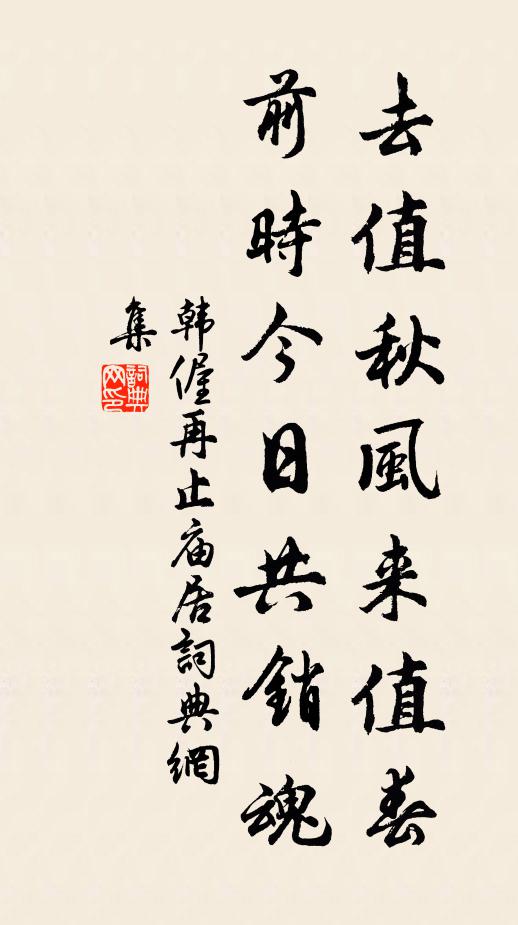 去值秋風来值春
前時今日共銷魂
韩偓再止庙居詞典網
集
詞典
网印